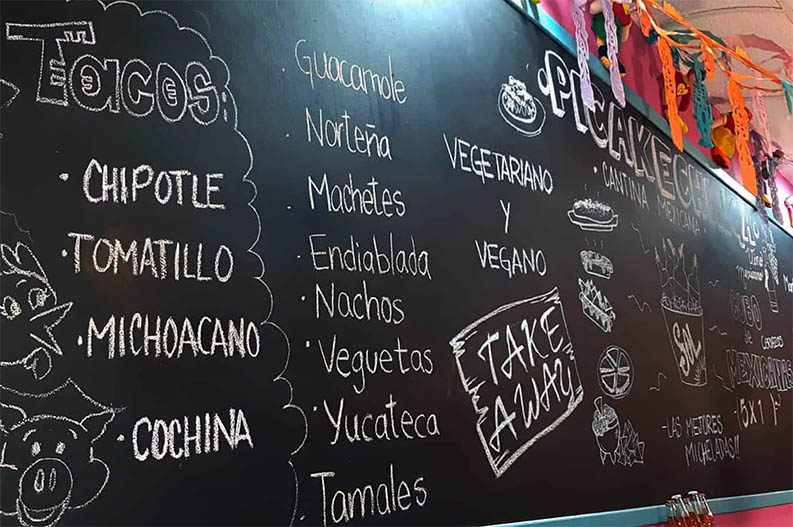 Tacos:
· CHIPOTLE
· TOMATILLO
· MICHOACANO
· COCHINA
· Guacamole
· Norteña
· Machetes
· Endiablada
· Nachos
· Veguetas
· Yucateca
· Tamales
VEGETARIANO
Y
VEGANO
TAKE
AWAY
· CANTINA MEXICANA
SOL
CUBO
DE
MEXICANAS
5X1
· LAS MEJORES
MICHELADAS!!